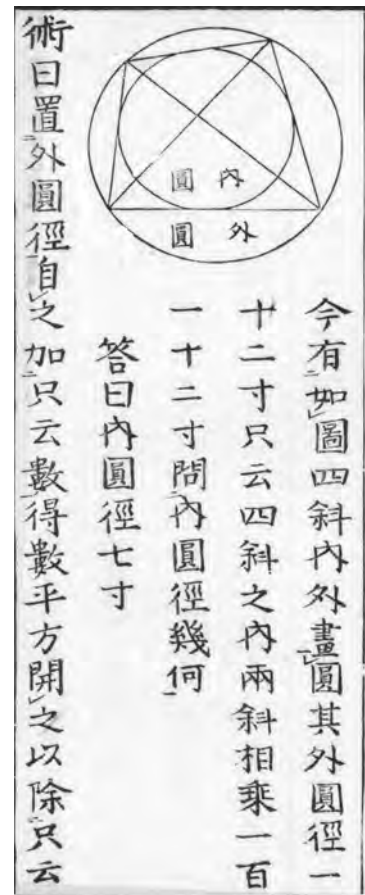 内圓
外圓
今有如圖四斜内外畫圓其外圓徑一
十二寸只云四斜之内兩斜相乘一百
一十二寸問内圓徑幾何
答曰内圓徑七寸
術曰置外圓徑自之加只云數得數平方開之以除只云